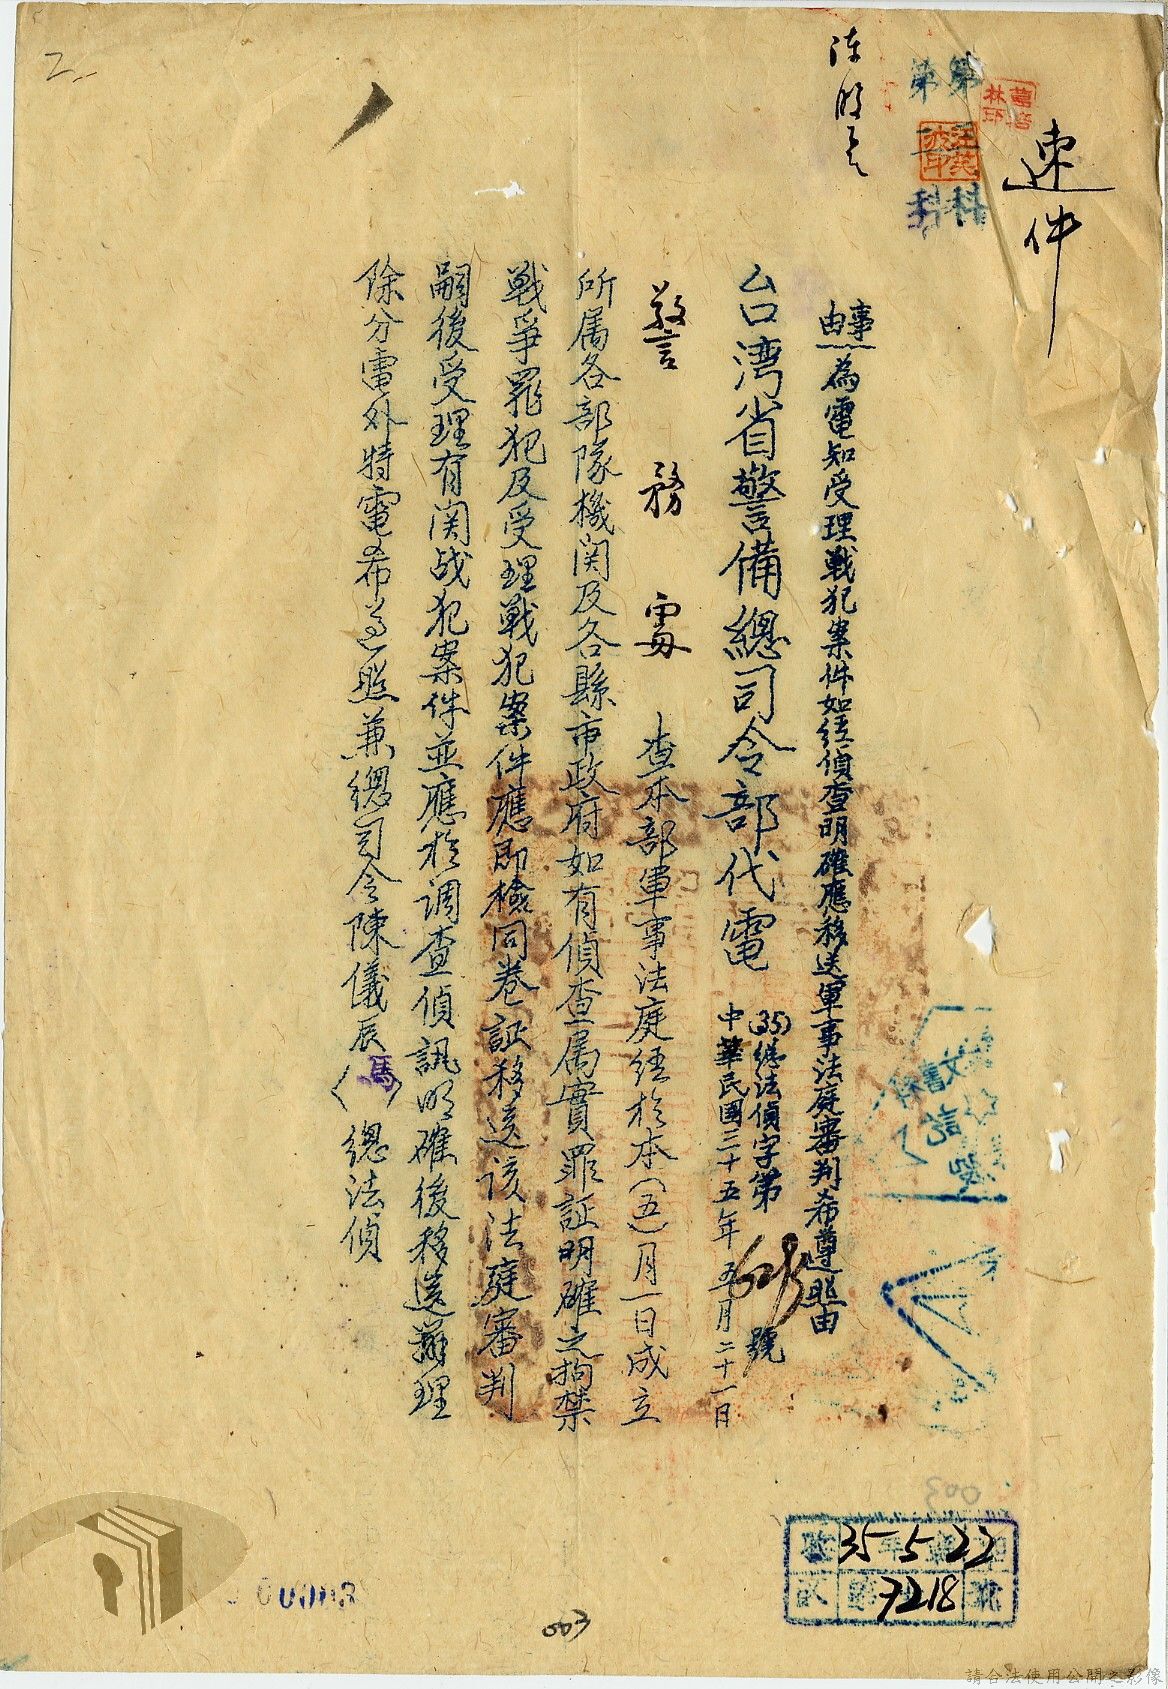 速件
事由 為電知受理戰犯案件如經偵查明確應移送軍事法庭審判希遵照由
台湾省警備總司令部代電
(35)總法偵字第 號
中華民國三十五年五月二十一日
警務處 查本部軍事法庭経於本(五)月一日成立
所属各部隊機関及各縣市政府如有偵查属實罪証明確之拘禁
戦爭罪犯及受理戰犯案件應即檢同卷証移送該法庭審判
嗣後受理有関战犯案件並應於調查偵訊明確後移送辦理
除分電外特電希遵照兼總司令陳儀辰〈馬〉總法偵
35-5-22
7218
003
請合法使用公開之影像